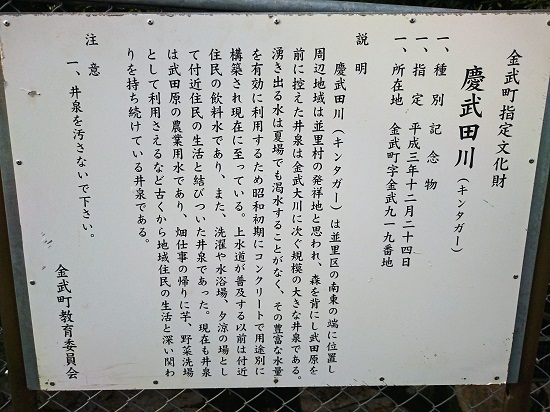 金武町指定文化財
慶武田川（キンタガー）
一、種別 記念物
一、指定 平成三年十二月二十四日
一、所在地 金武町字金武九一九番地
説明
慶武田川（キンタガー）は並里区の南東の端に位置し
周辺地域は並里村の発祥地と思われ、森を背にし武田原を
前に控えた井泉は金武大川に次ぐ規模の大きな井泉である。
湧き出る水は夏場でも渇水することがなく、その豊富な水量
を有効に利用するため昭和初期にコンクリートで用途別に
構築され現在に至っている。上水道が普及する以前は付近
住民の飲料水であり、また、洗濯や水浴場、夕涼の場とし
て付近住民の生活と結びついた井泉であった。現在も井泉
は武田原の農業用水であり、畑仕事の帰りに芋、野菜洗場
として利用さえるなど古くから地域住民の生活と深い関わ
りを持ち続けている井泉である。
注意
一、井泉を汚さないで下さい。
金武町教育委員会